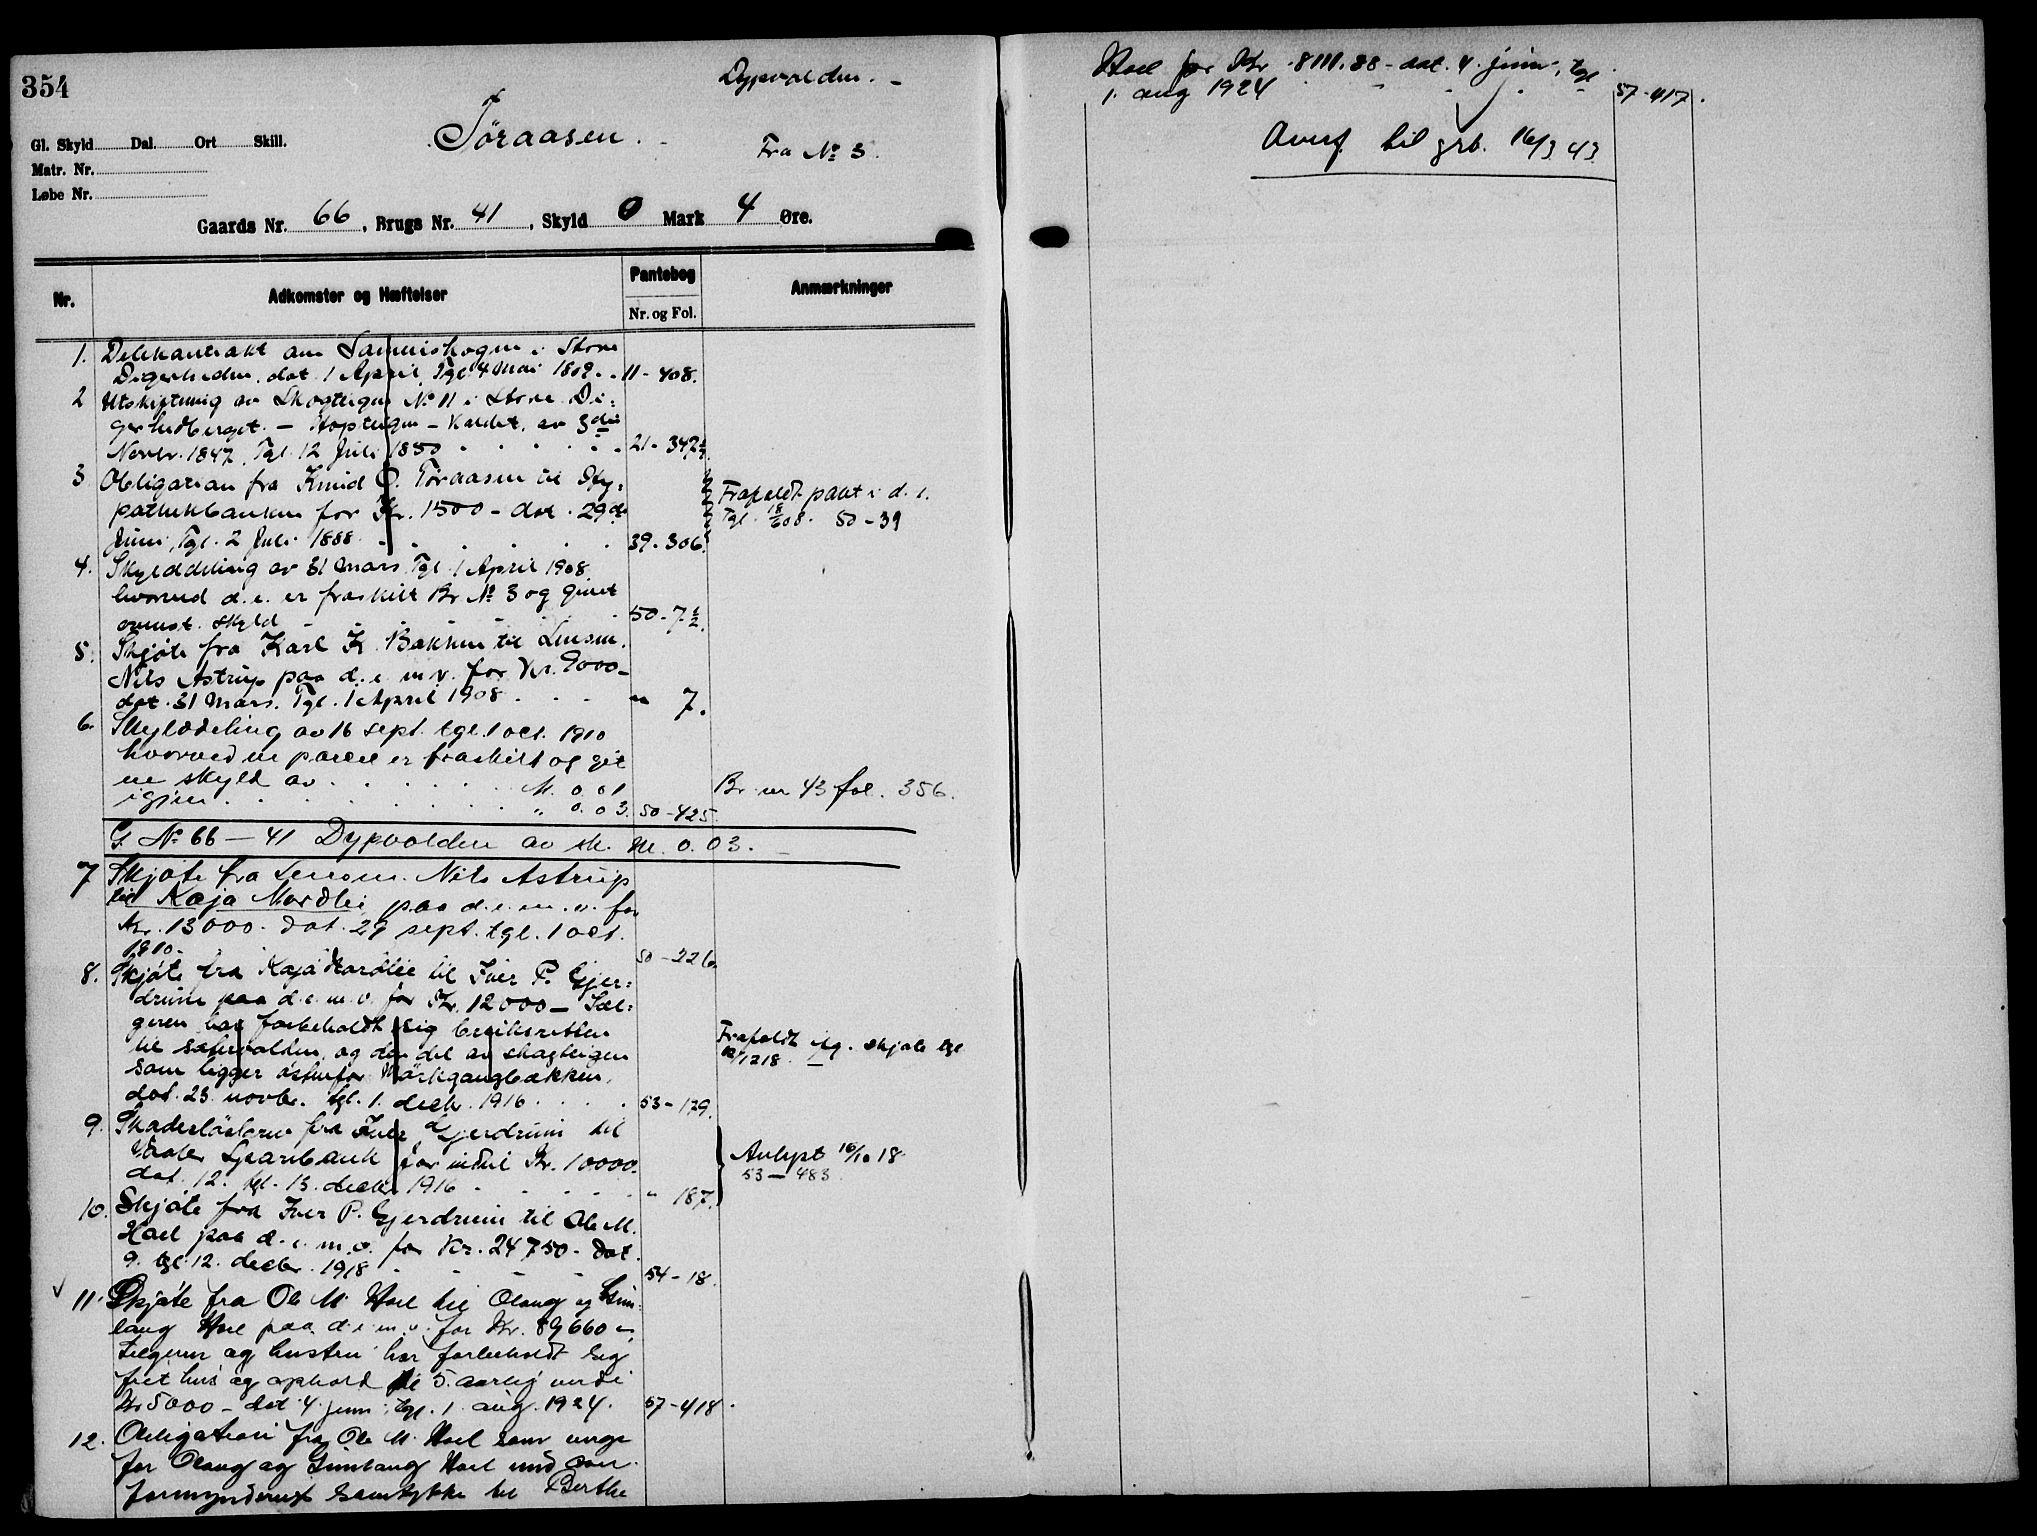 354
Dypvolden.
Tøraasen.
Fra No 3.
Gl. Skyld Dal. Ort Skill.
Matr. Nr.
Løbe Nr.
Gaards Nr. 66, Brugs Nr. 41, Skyld 0 Mark 4 Øre.
Nr. Adkomster og Hæftelser Pantebog Nr. og Fol. Anmærkninger
1. Delekontrakt om i Store
dat. 1 April, Tgl. 4 Mai 11 - 408.
2 Utskiftning av Skogteigen No 11 i Store Di-
gerhedberget. - Kaldet, av 3die
Novbr. 1847, Tgl. 12 Juli 1850 21 - 342
3 Obligation fra Knud O. Tøraasen til Hy-
pothekbanken for Kr. 1500 - dat. 29de
Juni, Tgl. 2 Juli 1888 39 - 306.
Frafaldt pant i d. e.
Tgl. 18/6 08. 50 - 39
4. Skylddeling av 31 Mars Tgl. 1 April 1908
hvorved d. e. er fraskilt Br No 3 og givet
ovenst. skyld 50 - 7 1/2.
5. Skjøte fra Karl K. Bakken til Lensm.
Nils Astrup paa d. e. m. v. for Kr. 9000 -
dat. 31 Mars. Tgl. 1 April 1908 " 7.
6. Skylddeling av 16 sept. tgl. 1 oct. 1910
hvorved en parcel er fraskilt og git
en skyld av M. 0.01
igjen " 0.03. 50 - 425.
Br nr 43 fol. 356.
G. No 66 - 41 Dypvolden av sk. M. 0.03.
7 Skjøte fra Lensm. Nils Astrup
til Kaja Nordli paa d. e. m. v. for
Kr. 13000. dat. 29 sept. tgl. 1 oct.
1910. 50 - 226.
8. Skjøte fra Kaja Nordlie til Iver P. Gjer-
drum paa d. e. m. v. for Kr. 12000 - Sæl-
geren har forbeholdt sig bruksretten
til sætervolden og den del av skogteigen
som ligger østenfor Mørkgangbækken,
dat. 23. novbr. tgl. 1. decbr. 1916 53 - 129.
Frafaldt iflg. skjøte tgl.
12/12 18.
9. Skadesløsbrev fra Iver Gjerdrum til
Vaaler Sparebank for indtil Kr. 10000.
dat. 12. tgl. 13. decbr 1916 " 187.
Avlyst 16/10 18
53 - 483.
10. Skjøte fra Iver P. Gjerdrum til Ole M.
Hoel paa d. e. m. v. for Kr. 24750 - dat
9. tgl. 12. decbr. 1918 54 - 18.
11. Skjøte fra Ole M. Hoel til Olaug og Gun-
laug Hoel paa d. e. m. v. for Kr. 89660
selgeren og hustru har forbeholdt sig
frit hus og ophold til 5. aarlig verdi
Kr 5000 - dat 4 juni, tgl. 1. aug. 1924. 57 - 418.
12. Obligation fra Ole M. Hoel som verge
for Olaug og Gunlaug Hoel med over-
formynderiets samtykke til Berthe
Hoel for Kr. 8111.88 - dat. 4. juni, tgl
1. aug 1924 57 - 417.
Overf. til grb. 16/3 43.